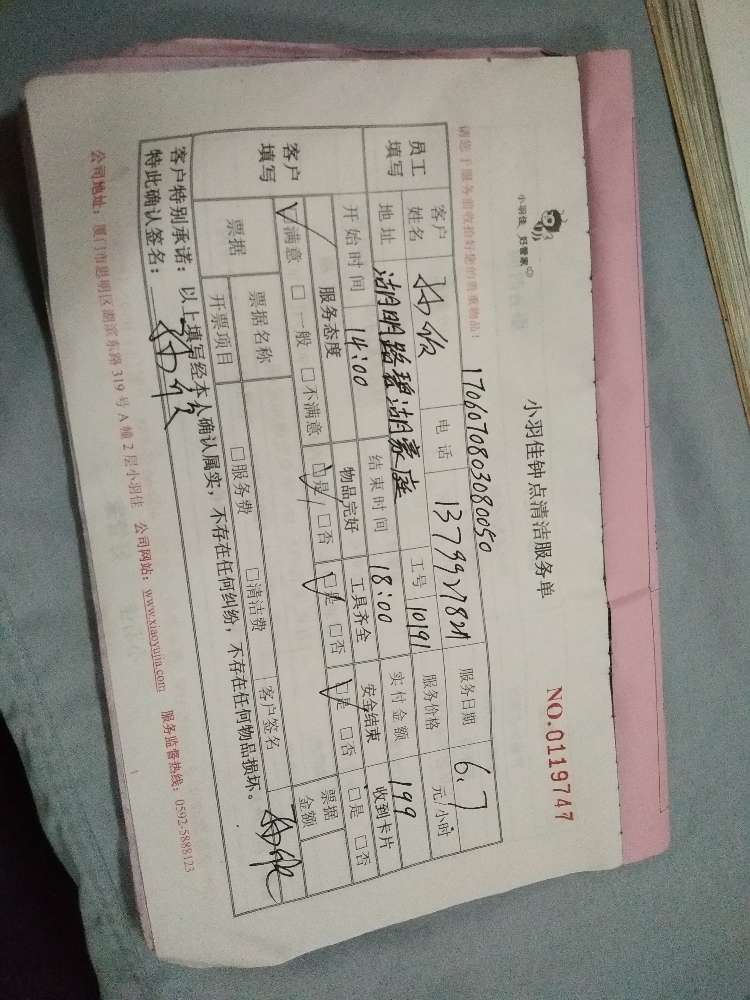 小羽佳 好管家
小羽佳钟点清洁服务单
NO.0119747
请您于服务验收拾好您的贵重物品!
1706070803080050
员工填写 客户姓名 电话 服务日期 6.7
地址 湖明路碧湖豪庭 工号 10191 服务价格 元/小时
开始时间 14:00 结束时间 18:00 实付金额 199
客户填写 服务态度 物品完好 工具齐全 安全结束 收到卡片
☑满意 □一般 □不满意 ☑是 □否 ☑是 □否 ☑是 □否 □是 □否
票据 票据名称 □服务费 □清洁费 客户签名 票据金额
开票项目
客户特别承诺:以上填写经本人确认属实,不存在任何纠纷,不存在任何物品损坏。
特此确认签名:
公司地址:厦门市思明区湖滨东路 319 号 A 幢 2 层小羽佳 公司网站:www.xiaoyujia.com 服务监督热线:0592-5888123